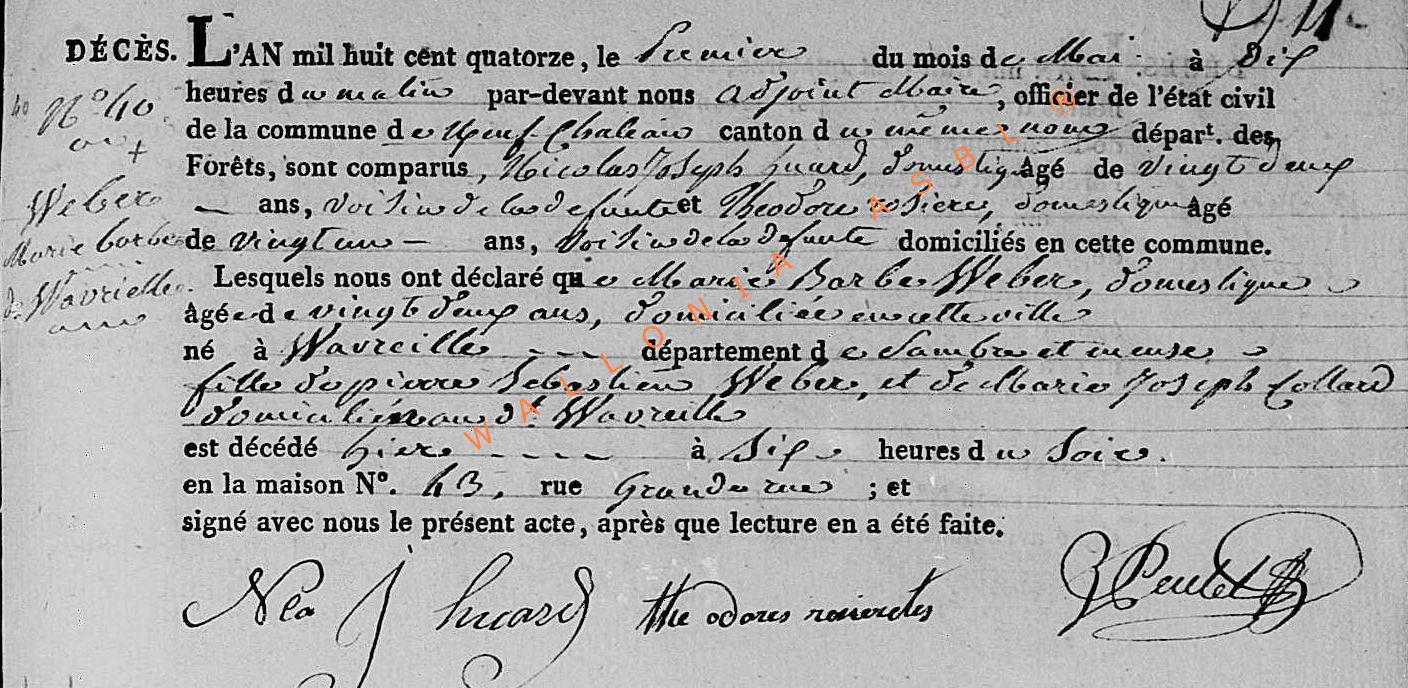 DÉCÈS. L'AN mil huit cent quatorze, le Premier du mois de Mai à dix
heures du matin par-devant nous adjoint Maire, officier de l'état civil
de la commune de Neuf-Chateau canton du même nom départ. des
Forêts, sont comparus, Nicolas Joseph huard, domestique âgé de vingt deux
ans, voisin de la defunte et Theodore rosiere, domestique âgé
de vingt un ans, voisin de la defunte domiciliés en cette commune.
Lesquels nous ont déclaré que Marie Barbe Weber, domestique
âgée de vingt deux ans, domiciliée en cette ville
né à Wavreille département de Sambre et meuse
fille de pierre Sebastien Weber, et de Marie Joseph Collard
domiciliés au dt. Wavreille
est décédé hier à Six heures du Soir.
en la maison No. 43, rue Grande rue ; et
signé avec nous le présent acte, après que lecture en a été faite.
40 No 40
Weber
Marie barbe
de Wavreille
N J huard theodore
WALLONIA ASBL